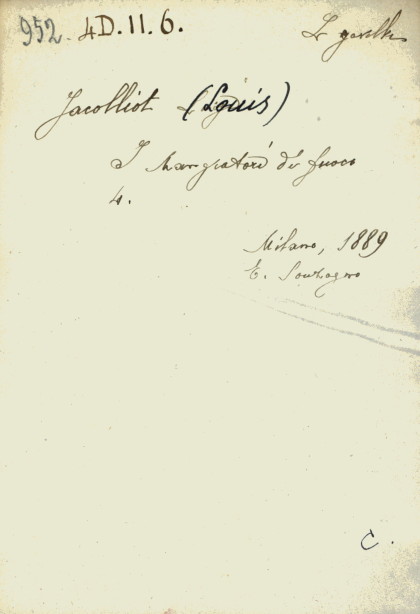 952. 4D.11.6.
Jacolliot (Louis)
I Mangiatori di fuoco
4.
Milano, 1889
E. Sonzogno
C.